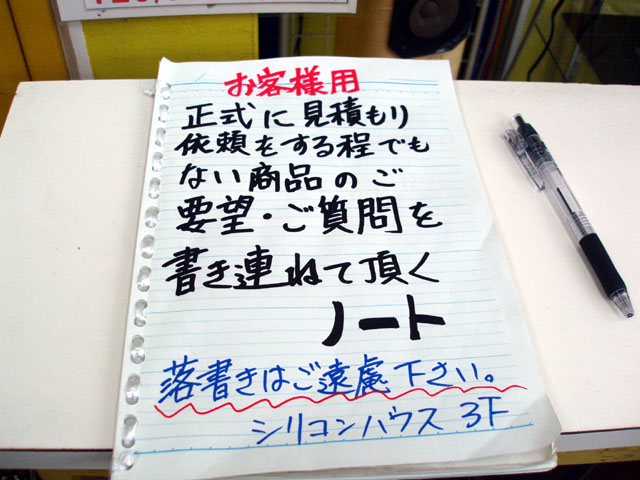 お客様用
正式に見積もり
依頼をする程でも
ない商品のご
要望・ご質問を
書き連ねて頂く
ノート
落書きはご遠慮下さい。
シリコンハウス 3F